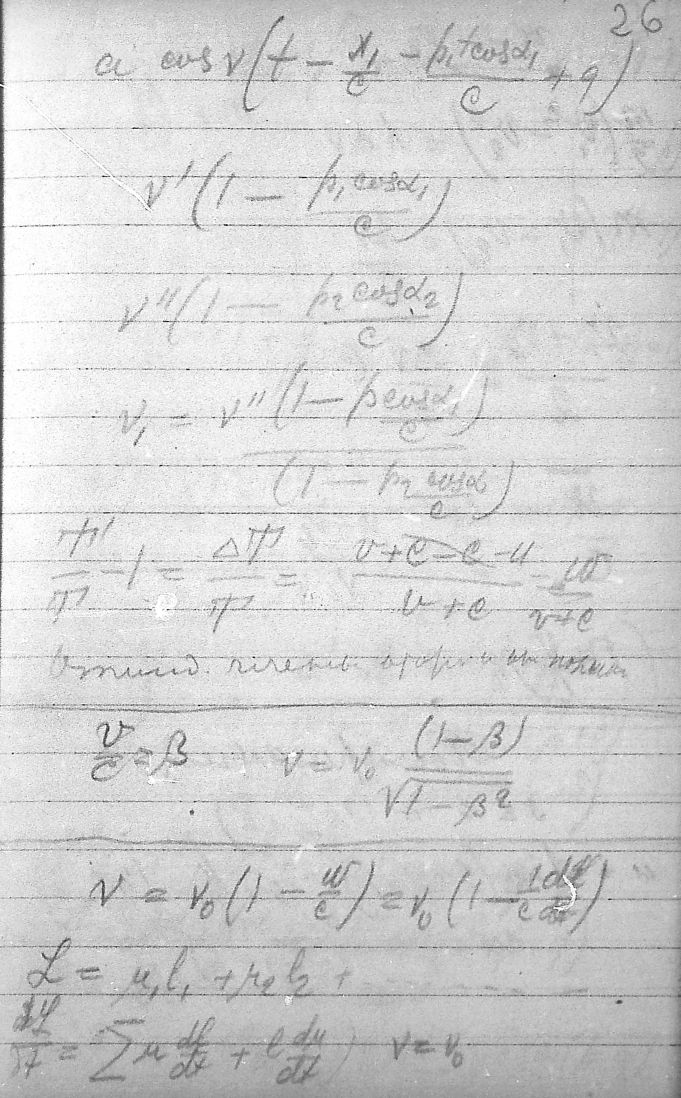 26
a cos ν(t − x₁/c − p₁t cosα₁/c + q)
ν'(1 − p₁cosα₁/c)
ν''(1 − p₂cosα₂/c)
ν₁ = ν''(1 − p cosα₁/c)/(1 − p₂ cosα/c)
T'/T − 1 = ΔT/T = (v+c−c−u)/(v+c) = w/(v+c)
v/c = β ν = ν₀ (1−β)/√(1−β²)
ν = ν₀(1 − w/c) = ν₀(1 −
L = μ₁l₁ + μ₂l₂ +
dL/dt = ∑ μ dl/dt + l dμ/dt) ν = ν₀